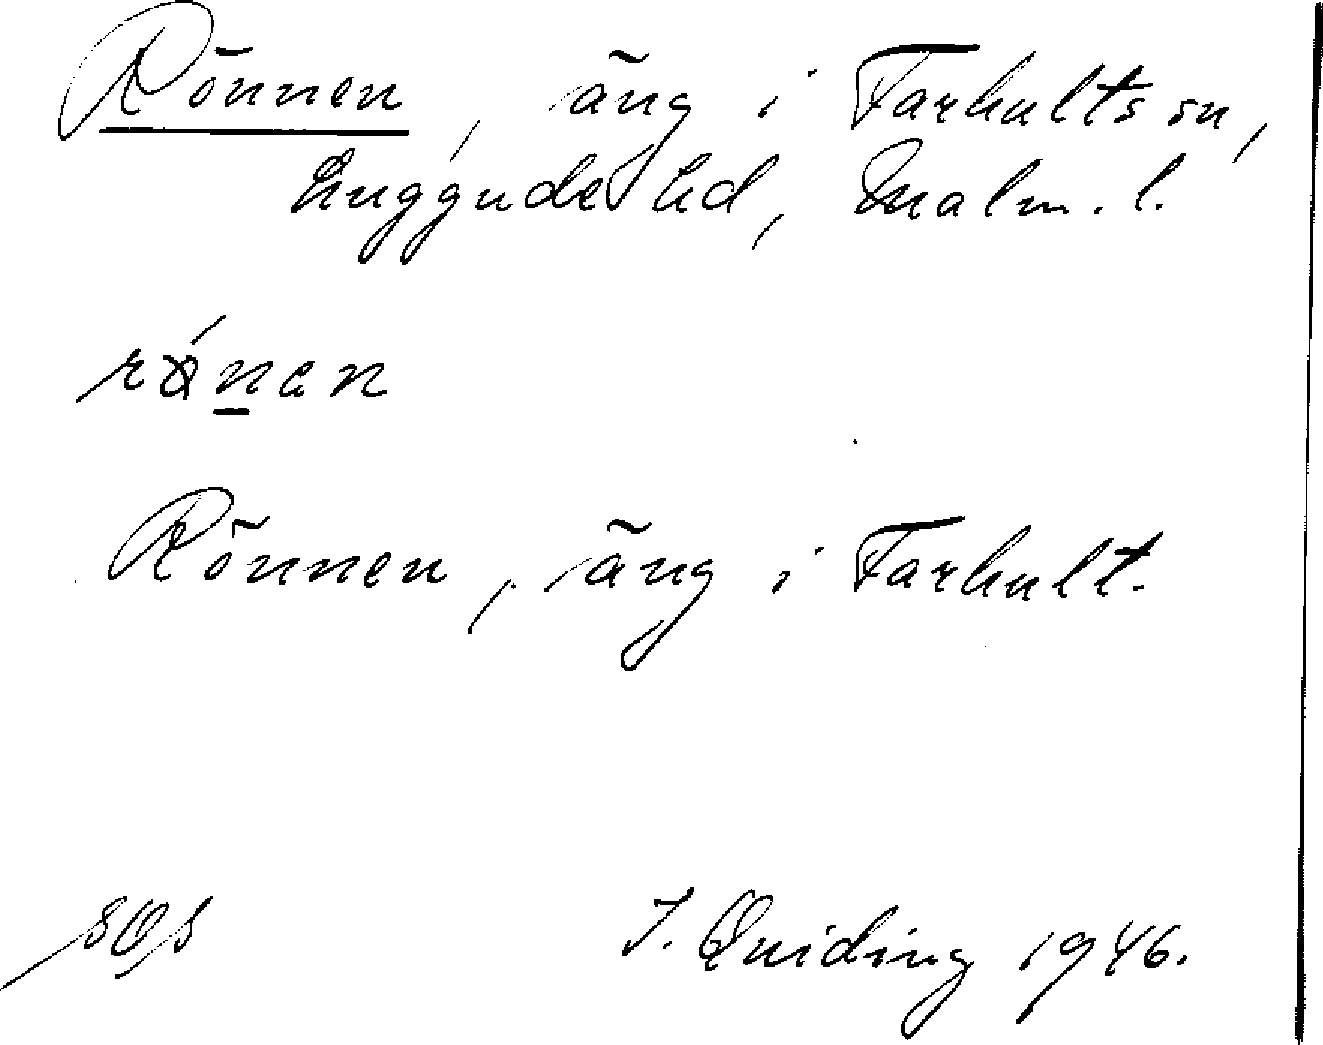 Rönnen, äng i Farhults sn,
Luggude hd, Malm. l.
Rönnen, äng i Farhult.
I. Quiding 1946.